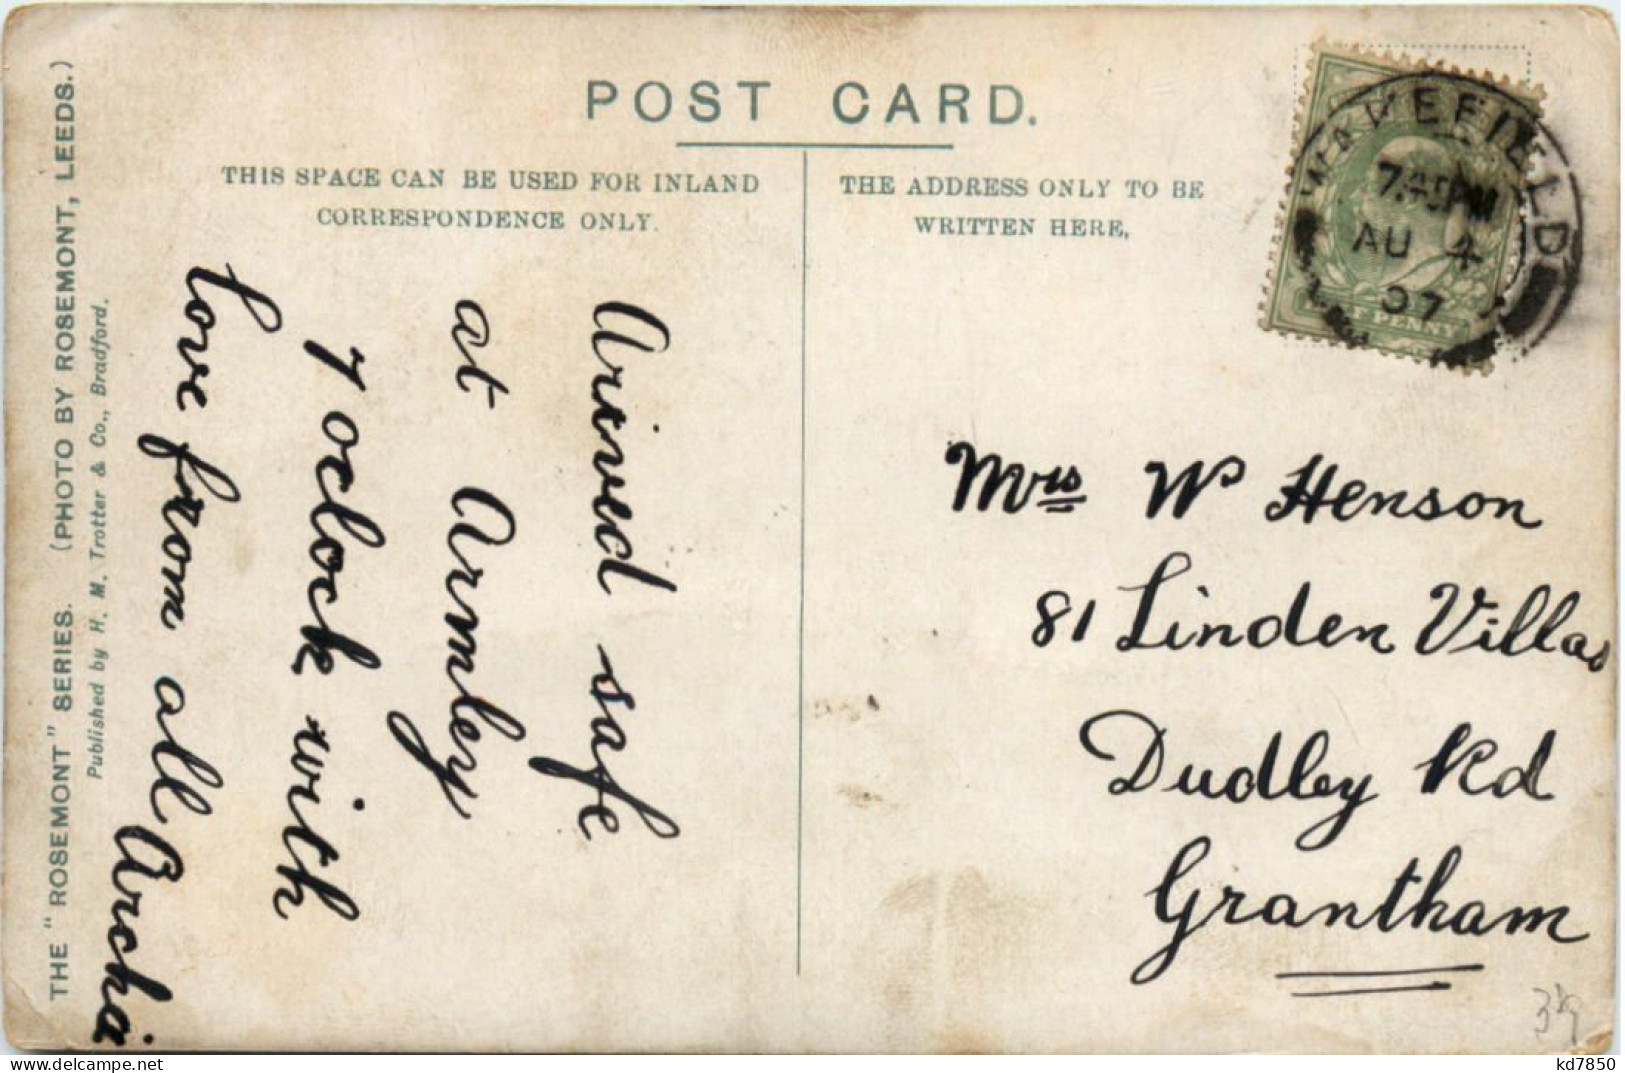 POST CARD.
THIS SPACE CAN BE USED FOR INLAND
CORRESPONDENCE ONLY.
THE ADDRESS ONLY TO BE
WRITTEN HERE,
THE "ROSEMONT" SERIES. (PHOTO BY ROSEMONT, LEEDS.)
Published by H. M. Trotter & Co., Bradford.
Arived safe
at Armley
7 oclock with
love from all
WAKEFIELD
7.45PM
AU 4
07
HALF PENNY
Mrs W Henson
81 Linden Villas
Dudley Rd
Grantham
kd7850